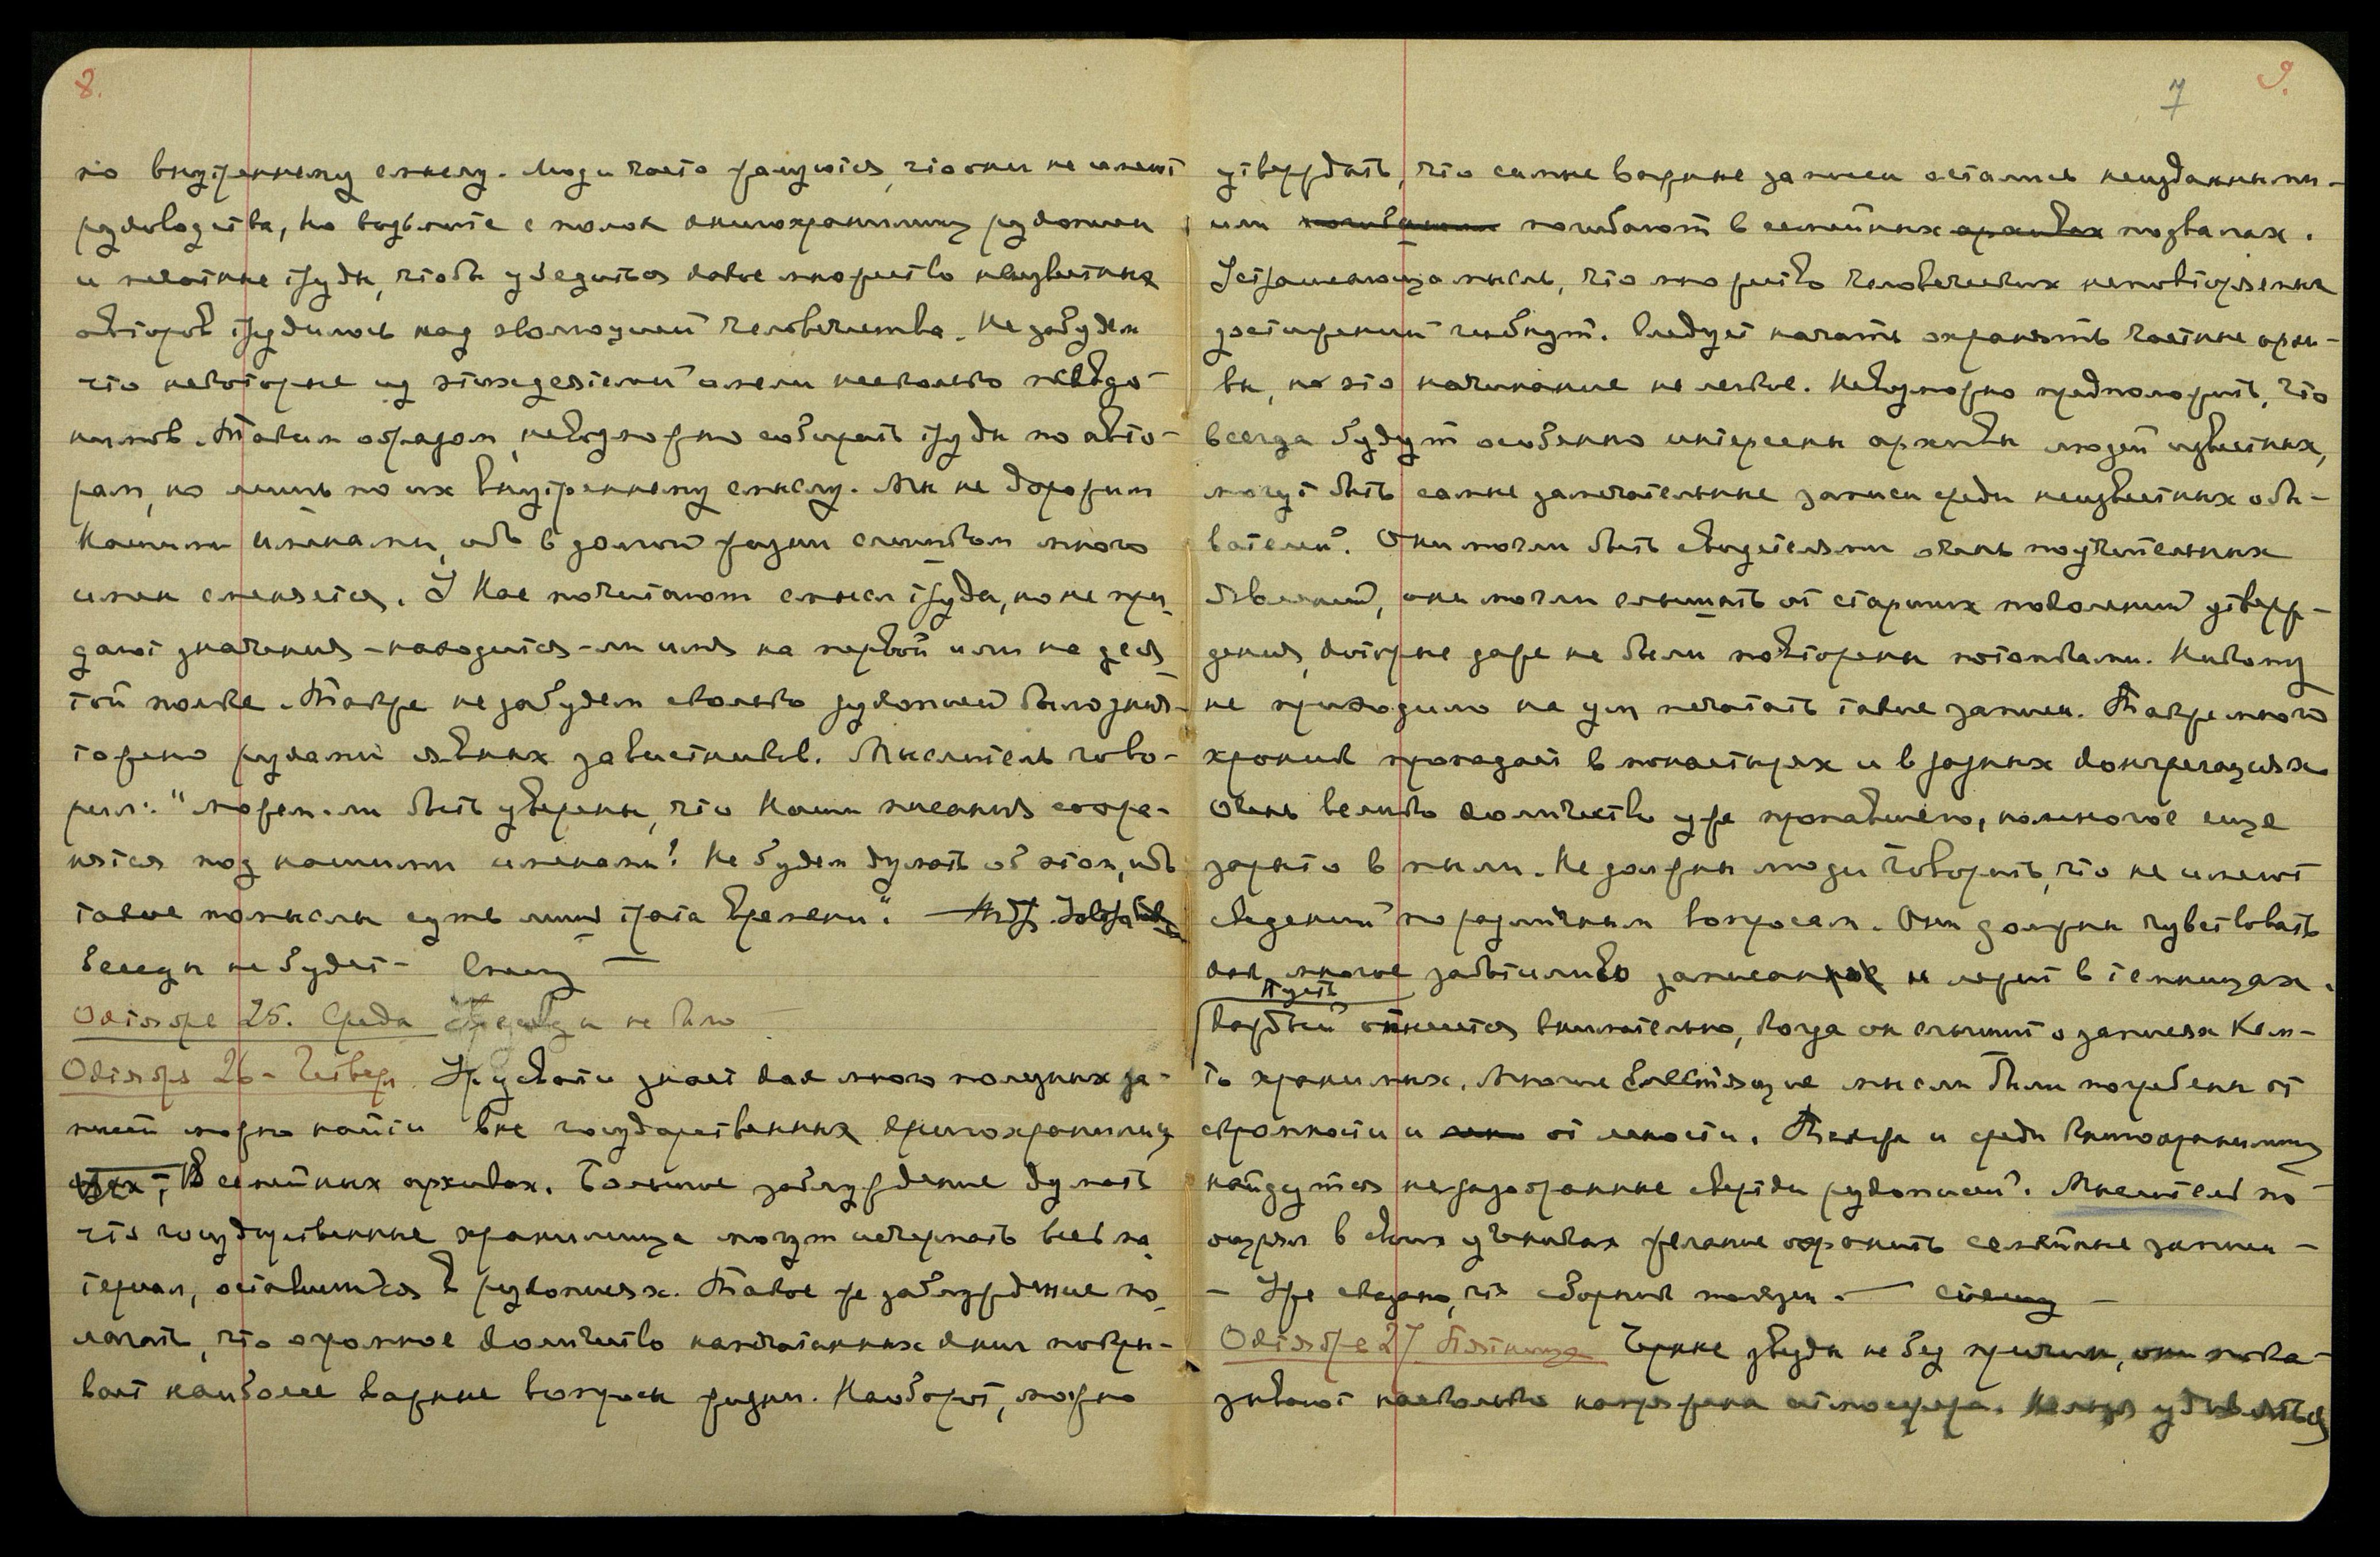 8.
по внутреннему смыслу. Люди часто жалуются, что они не имеют
руководства, но возьмите с полок книгохранилищ рукописи
и печатные труды, чтобы убедиться какое множество неизвестных
авторов трудилось над эволюцией человечества. Не забудем
что некоторые из этих деятелей имели несколько псевдо-
нимов. Таким образом, невозможно собирать труды по авто-
рам, но лишь по их внутреннему смыслу. Мы не дорожим
Нашими именами, ибо в долгой жизни слишком много
имен сменяется. У Нас почитают смысл труда, но не при-
дают значения - находится-ли имя на первой или на деся-
той полке. Также не забудем сколько рукописей было уничт-
тожено руками явных завистников. Мыслитель гово-
рил: "можем-ли быть уверены, что Наши писания сохра-
нятся под нашими именами! Не будем думать об этом, ибо
такие помыслы суть лишь трата времени".
Беседы не будет- Спешу —
Октября 25. Среда Беседы не было
Октября 26 - Четверг. Урусвати знает как много полезных за-
писей можно найти вне государственных книгохранилищ
В семейных архивах. Большое заблуждение думать
что государственные хранилища могут исчерпать весь ма-
териал, оставшийся в рукописях. Такое же заблуждение по-
лагать, что огромное количество напечатанных книг покры-
вает наиболее важные вопросы жизни. Наоборот, можно
7 9.
утверждать, что самые важные записи остались неизданными -
или погибают в семейных архивах подвалах.
Устрашающа мысль, что множество человеческих неповторяемых
достижений гибнут. Следует начать охранять частные архи-
вы, но это начинание не легкое. Невозможно предположить, что
всегда будут особенно интересны архивы людей известных,
могут быть самые замечательные записи среди неизвестных обы-
вателей. Они могли быть свидетелями очень поучительных
явлений, они могли слышать от старших поколений утверж-
дения, которые даже не были повторены потомками. Никому
не приходило на ум печатать такие записи. Также много
хроник пропадает в монастырях и в разных конгрегациях
Очень велико количество уже пропавшего, но многое еще
зарыто в пыли. Не должны люди говорить, что не имеют
сведений по различным вопросам. Они должны чувствовать
как многое заботливо записанное и лежит в темницах.
Пусть
каждый отнесется внимательно, когда он слышит о записях Кем-
то хранимых. Многие блестящие мысли были погребены от
скромности и от лености. Также и среди книгохранилищ
найдутся неразобранные свертки рукописей. Мыслитель по-
ощрял в своих учениках желание охранить семейные записи -
- Уже сказано, что сборник полезен. — Спешу —
Октября 27 Пятница Черные звезды не без причин, они пока-
зывают насколько напряжена атмосфера. Нельзя удивляться